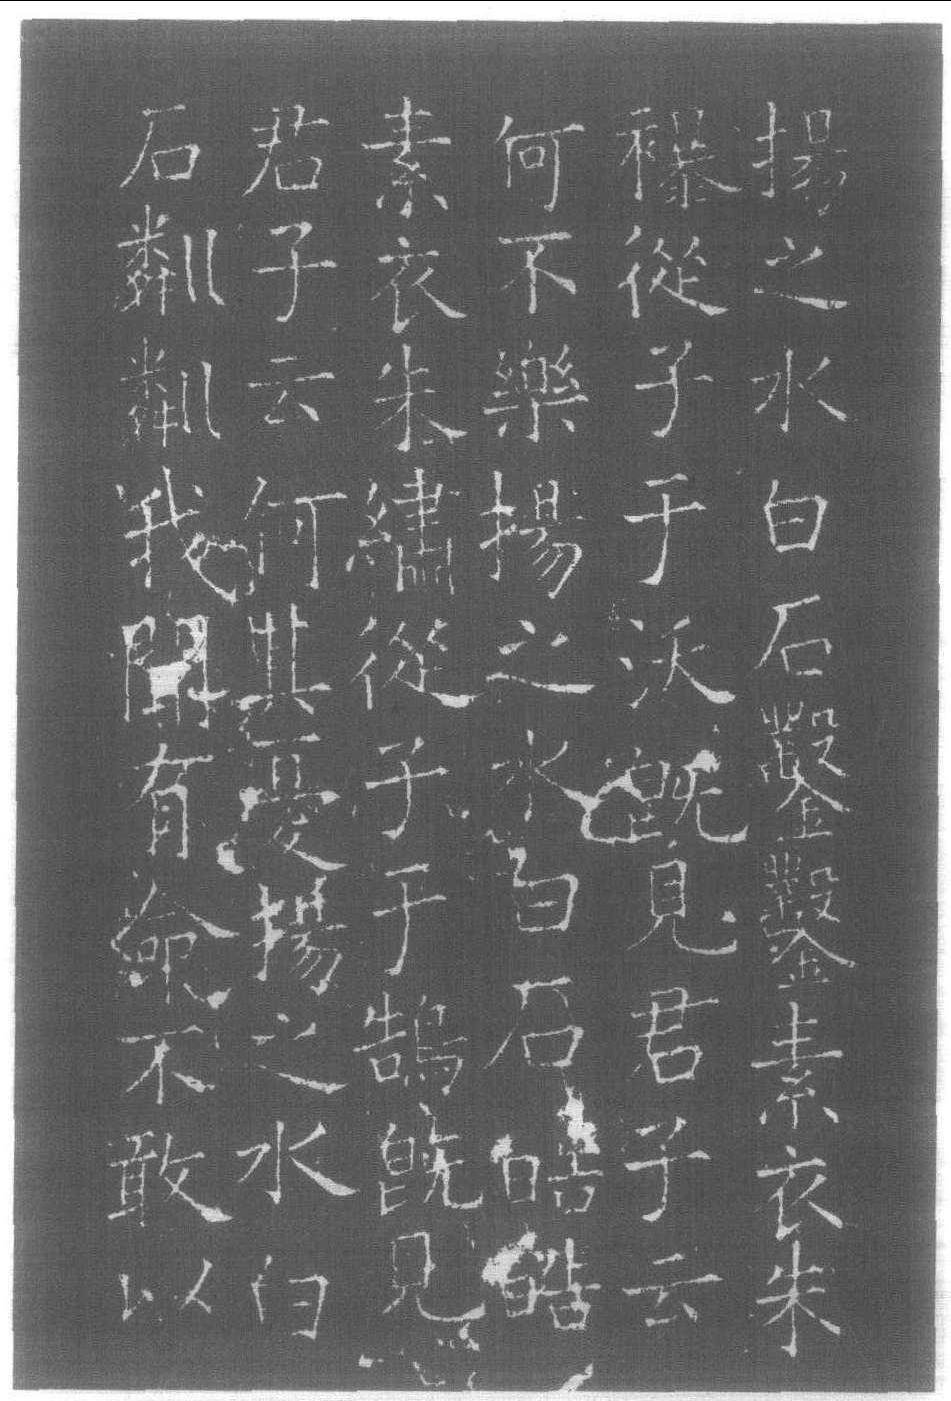 揚之水白石鑿鑿素衣朱
襮從子于沃既見君子云
何不樂揚之水白石皓皓
素衣朱繡從子于鵠既見
君子云何其憂揚之水白
石粼粼我聞有命不敢以